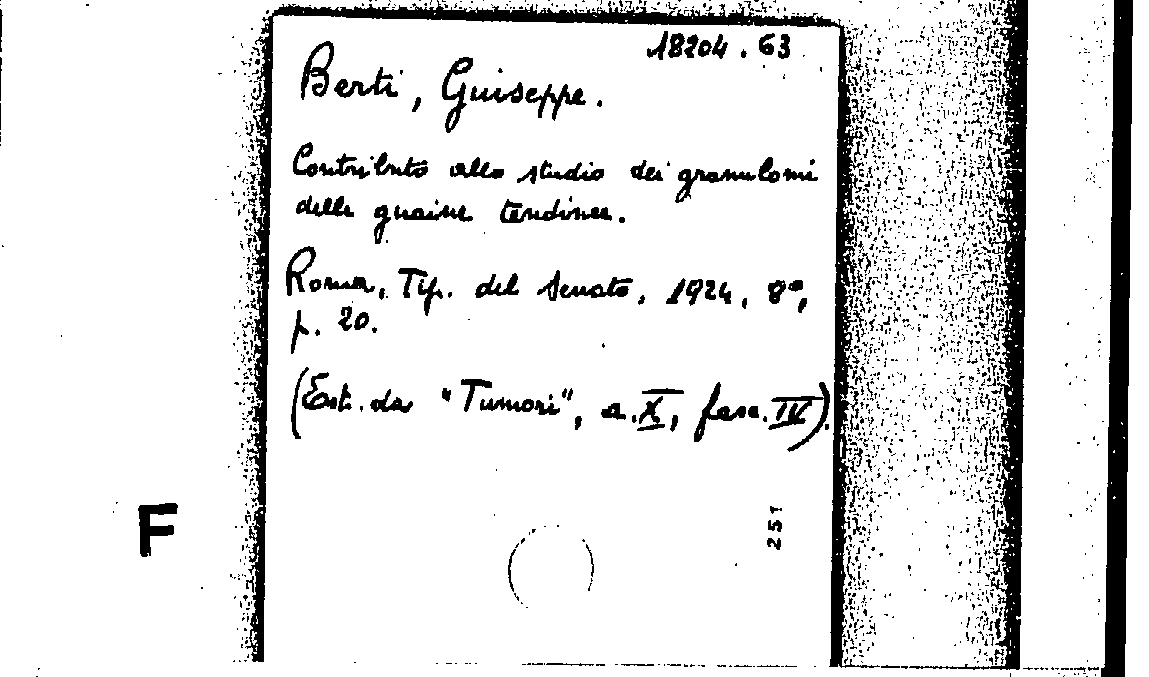 18204.63
Berti, Guiseppe.
Contributo allo studio dei granulomi
delle guaine tendinee.
Roma, Tip. del Senato, 1924, 8°,
p. 20.
(Est. da "Tumori", a. X, fasc. IV).
251
F